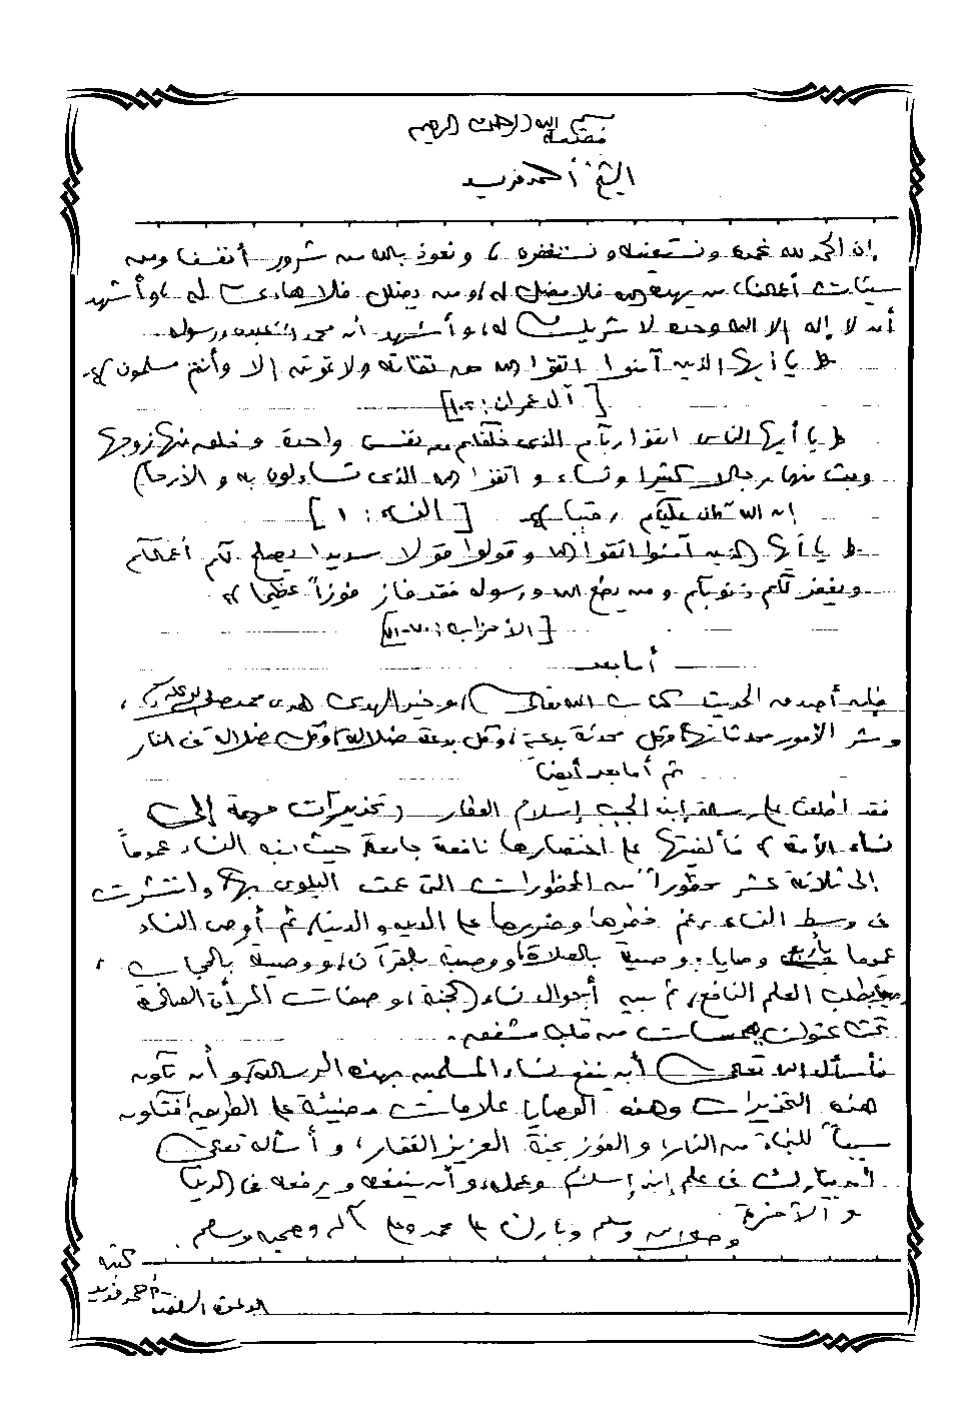 بسم الله الرحمن الرحيم
مقدمة
الشيخ أحمد فريد
إن الحمد لله نحمده ونستعينه ونستغفره، ونعوذ بالله من شرور أنفسنا ومن
سيئات أعمالنا، من يهده الله فلا مضل له، ومن يضلل فلا هادى له، وأشهد
أن لا إله إلا الله وحده لا شريك له، وأشهد أن محمداً عبده ورسوله
﴿ يا أيها الذين آمنوا اتقوا الله حق تقاته ولا تموتن إلا وأنتم مسلمون ﴾
[ آل عمران: ١٠٢]
﴿ يا أيها الناس اتقوا ربكم الذى خلقكم من نفس واحدة وخلق منها زوجها
وبث منهما رجالا كثيرا ونساء واتقوا الله الذى تساءلون به والأرحام
إن الله كان عليكم رقيبا ﴾ [ النساء: ١ ]
﴿ يا أيها الذين آمنوا اتقوا الله وقولوا قولا سديدا يصلح لكم أعمالكم
ويغفر لكم ذنوبكم ومن يطع الله ورسوله فقد فاز فوزاً عظيما ﴾
[الأحزاب: ٧٠-٧١]
أما بعد
فإن أصدق الحديث كتاب الله تعالى، وخير الهدى هدى محمد صلى الله عليه وسلم،
وشر الأمور محدثاتها، وكل محدثة بدعة، وكل بدعة ضلالة، وكل ضلالة فى النار
ثم أما بعد أيضاً
فقد اطلعت على رسالة إبنه الحبيب إسلام العقار (تحذيرات مهمة إلى
نساء الأمة) فألفيتها على اختصارها نافعة جامعة حيث نبه النساء عموماً
إلى ثلاثة عشر محظوراً من المحظورات التى عمت البلوى بها، وانتشرت
فى وسط النساء رغم خطرها وضررها على الدين والدنيا، ثم أوصى النساء
عموما بأربع وصايا: وصية بالصلاة، ووصية بالقرآن، ووصية بالحجاب،
ووصية بطلب العلم النافع، ثم بين أحوال نساء الجنة، وصفات المرأة الصالحة
تحت عنوان همسات من قلب مشفق.
فأسأل الله تعالى أن ينفع نساء المسلمين بهذه الرسالة، وأن تكون
هذه التحذيرات وهذه الوصايا علامات مضيئة على الطريق فتكون
سبباً للنجاة من النار، والفوز بجنة العزيز الغفار، وأسأله تعالى
أن يبارك فى علم إبنه إسلام وعمله، وأن ينفعه ويرفعه فى الدنيا
والآخرة
وصلى الله وسلم وبارك على محمد وعلى آله وصحبه وسلم.
كتبه
أحمد فريد
الدعوة السلفية